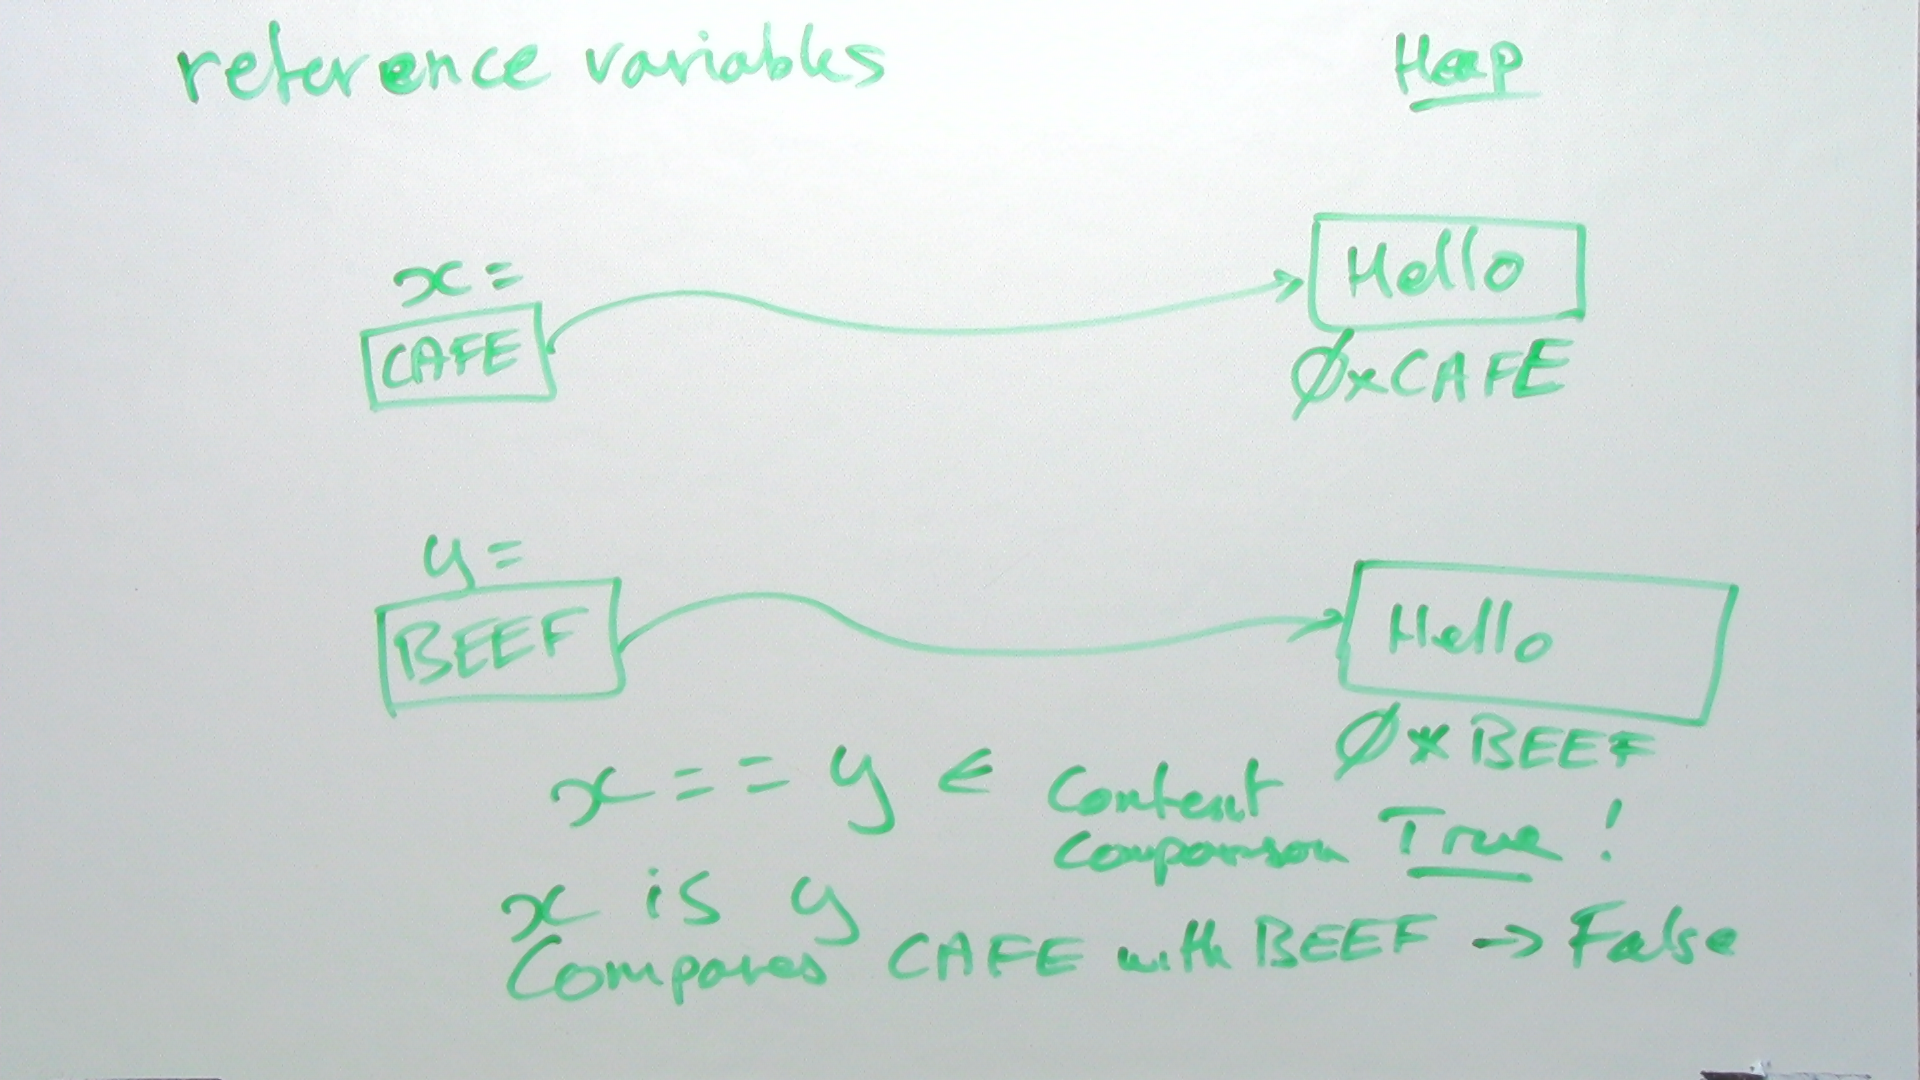 reference variables
Heap
x =
Hello
CAFE
0xCAFE
y =
Hello
BEEF
0xBEEF
x == y ← Content
Comparison True !
x is y
Compares CAFE with BEEF → False